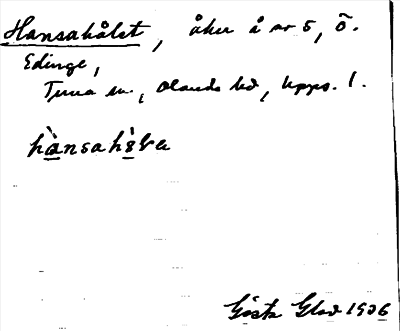 Hansahålet, åker å nr 5, Ö.
Edinge,
Tuna sn, Olands hd, Upps. l.
Gösta Glad 1906